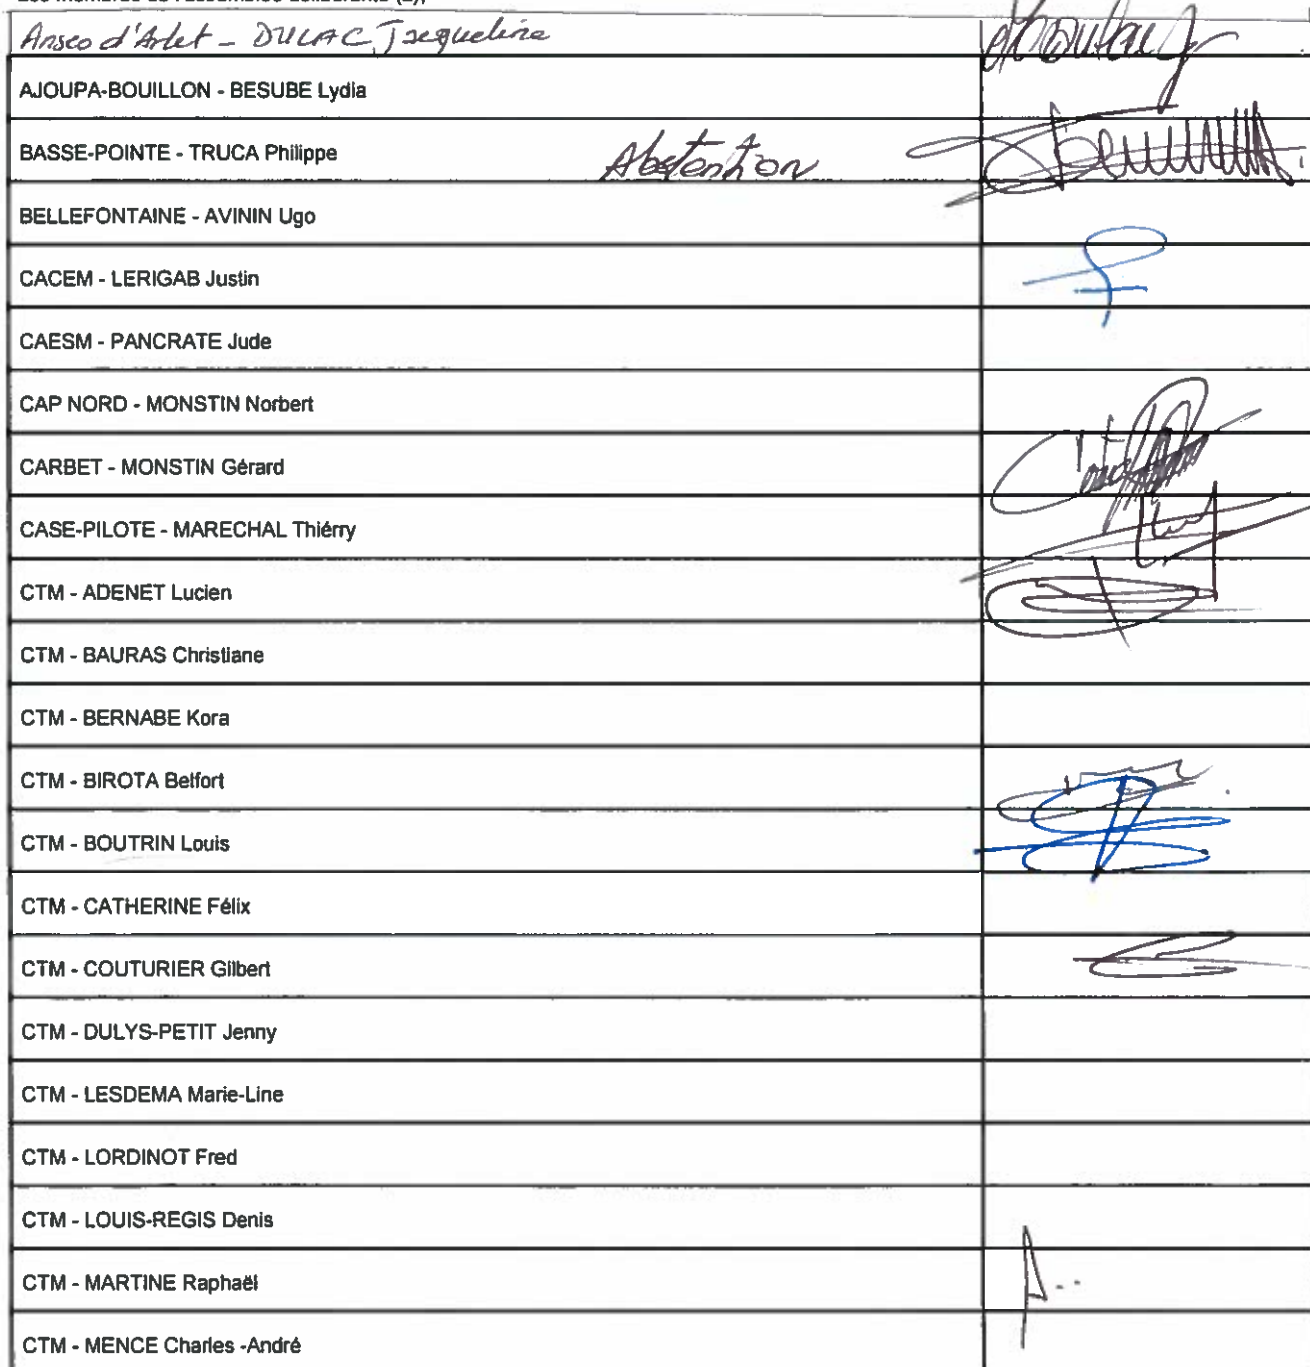 Les membres de l'assemblée délibérante (2),
Anses d'Arlet - DULAC Jacqueline
AJOUPA-BOUILLON - BESUBE Lydia
BASSE-POINTE - TRUCA Philippe Abstention
BELLEFONTAINE - AVININ Ugo
CACEM - LERIGAB Justin
CAESM - PANCRATE Jude
CAP NORD - MONSTIN Norbert
CARBET - MONSTIN Gérard
CASE-PILOTE - MARECHAL Thiérry
CTM - ADENET Lucien
CTM - BAURAS Christiane
CTM - BERNABE Kora
CTM - BIROTA Belfort
CTM - BOUTRIN Louis
CTM - CATHERINE Félix
CTM - COUTURIER Gilbert
CTM - DULYS-PETIT Jenny
CTM - LESDEMA Marie-Line
CTM - LORDINOT Fred
CTM - LOUIS-REGIS Denis
CTM - MARTINE Raphaël
CTM - MENCE Charles -André